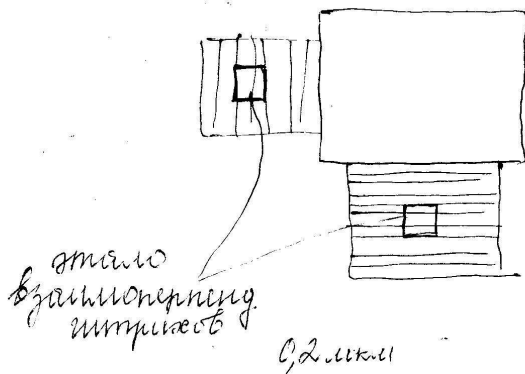 взаимоперпенд.
штрихов
0,2 мкм